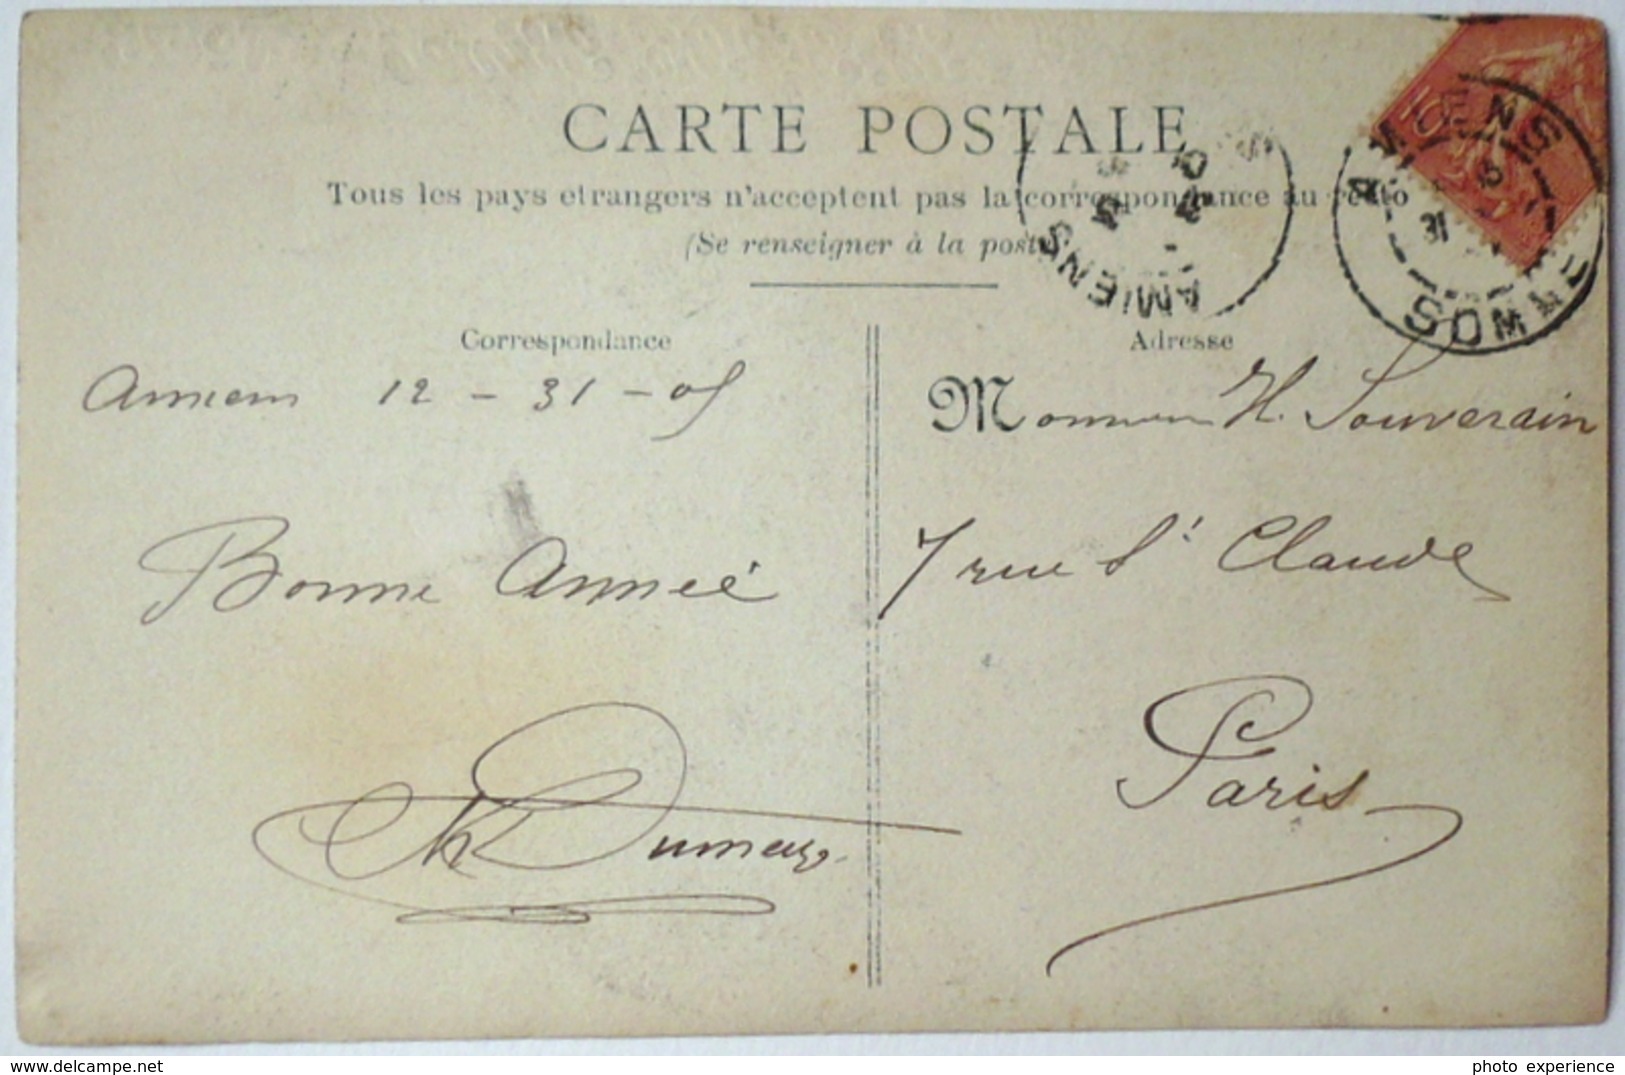 CARTE POSTALE
Tous les pays etrangers n'acceptent pas la correspondance au recto
(Se renseigner à la poste
Correspondance
Adresse
AMIENS
AMIENS
31
SOMME
10
Amiens 12 - 31 - 05
Monsieur H. Souverain
Bonne Année
7 rue St Claude
Paris
Ch Dumay
delcampe.net
photo experience